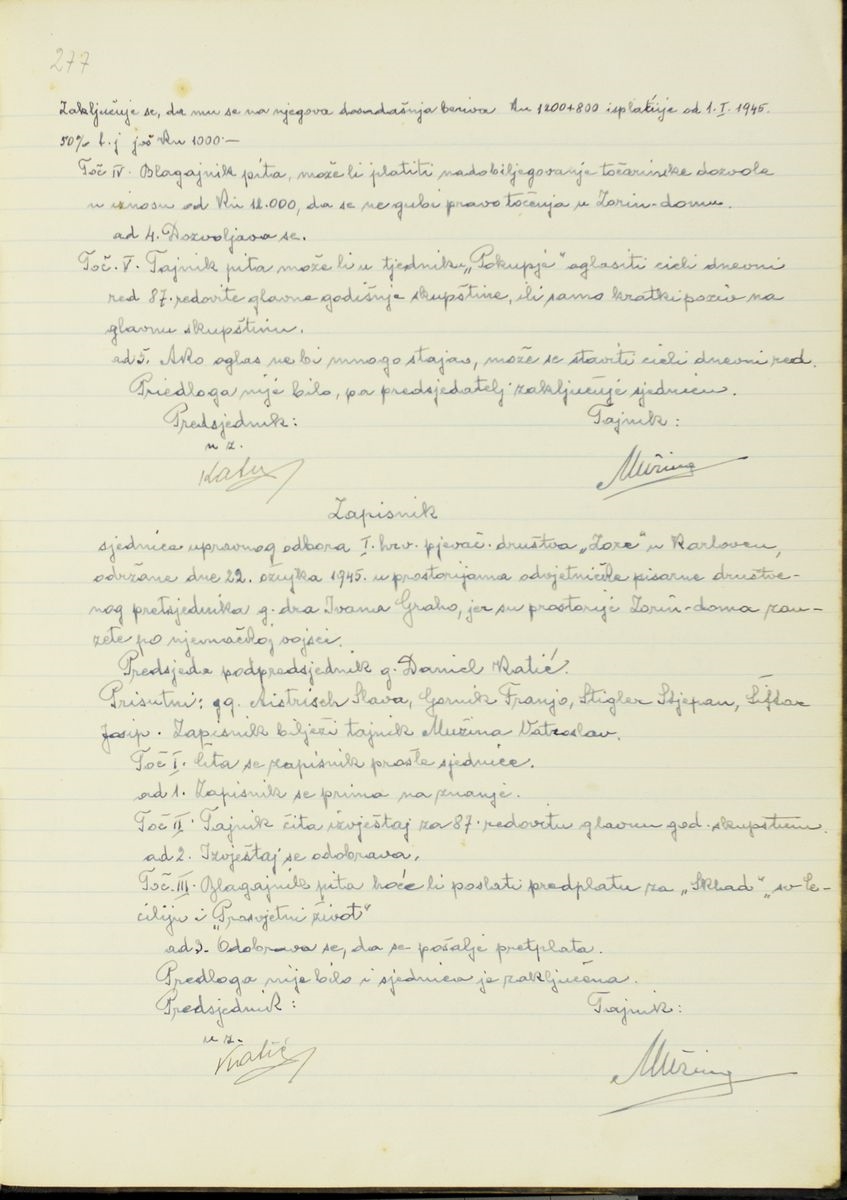 277
Zaključuje se, da mu se na njegova dosadašnja beriva Kn 1200+800 isplaćuje od 1. I. 1945.
50% t.j još Kn 1000.—
Toč IV. Blagajnik pita, može li platiti nadobiljegovanje točarinske dozvole
u iznosu od Kn 12.000, da se ne gubi pravo točenja u Zorin-domu.
ad 4. Dozvoljava se.
Toč. V. Tajnik pita može li u tjedniku „Pokupje" oglasiti cieli dnevni
red 87. redovite glavne godišnje skupštine, ili samo kratki poziv na
glavnu skupštinu.
ad 5. Ako oglas ne bi mnogo stajao, može se staviti cieli dnevni red.
Priedloga nije bilo, pa predsjedatelj zaključuje sjednicu.
Predsjednik: Tajnik:
u z.
Katić Mužina
Zapisnik
sjednice upravnog odbora I. hrv. pjevač. društva „Zore" u Karlovcu,
održane dne 22. ožujka 1945. u prostorijama odvjetničke pisarne društve-
nog pretsjednika g. dra Ivana Graho, jer su prostorije Zorin-doma zau-
zete po njemačkoj vojsci.
Predsjeda podpredsjednik g. Daniel Katić.
Prisutni: gg. Aistrisch Slava, Gornik Franjo, Stigler Stjepan, Šifkar
Josip. Zapisnik bilježi tajnik Mužina Vatroslav.
Toč I. Čita se zapisnik prošle sjednice.
ad 1. Zapisnik se prima na znanje.
Toč II. Tajnik čita izvještaj za 87. redovitu glavnu god. skupštinu.
ad 2. Izvještaj se odobrava.
Toč. III. Blagajnik pita hoće li poslati predplatu za „Sklad" „sv Ce-
ciliju i „Prosvjetni život"
ad 3. Odobrava se, da se pošalje pretplata.
Predloga nije bilo i sjednica je zaključena.
Predsjednik: Tajnik:
u z.
Katić Mužina